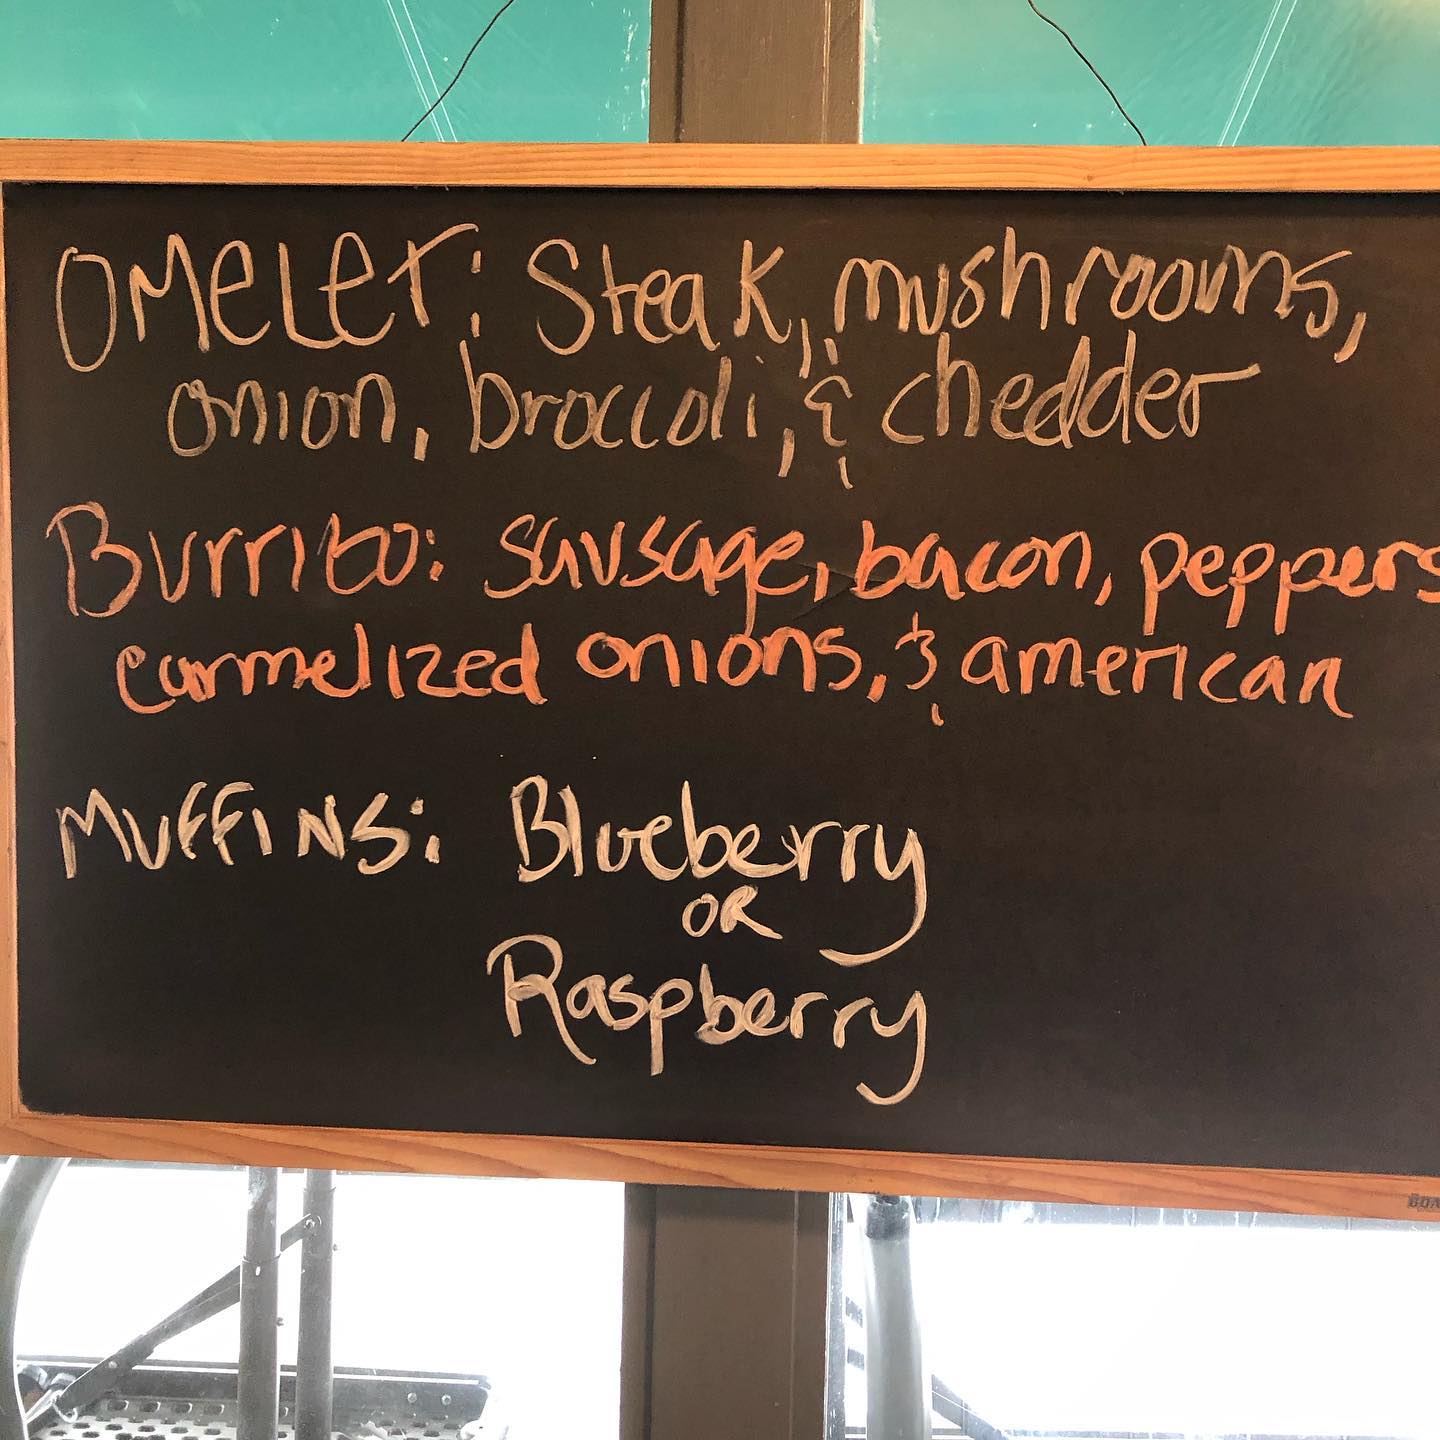 OMELET: Steak, mushrooms,
onion, broccoli, & chedder
Burrito: sausage, bacon, peppers
carmelized onions, & american
MUFFINS: Blueberry
OR
Raspberry